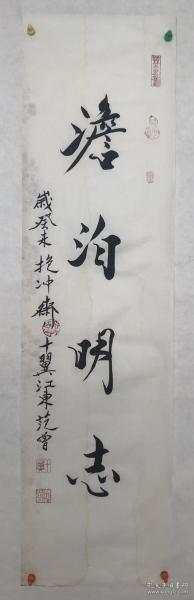 澹泊明志
歲癸未抱冲齋十翼江東范曾